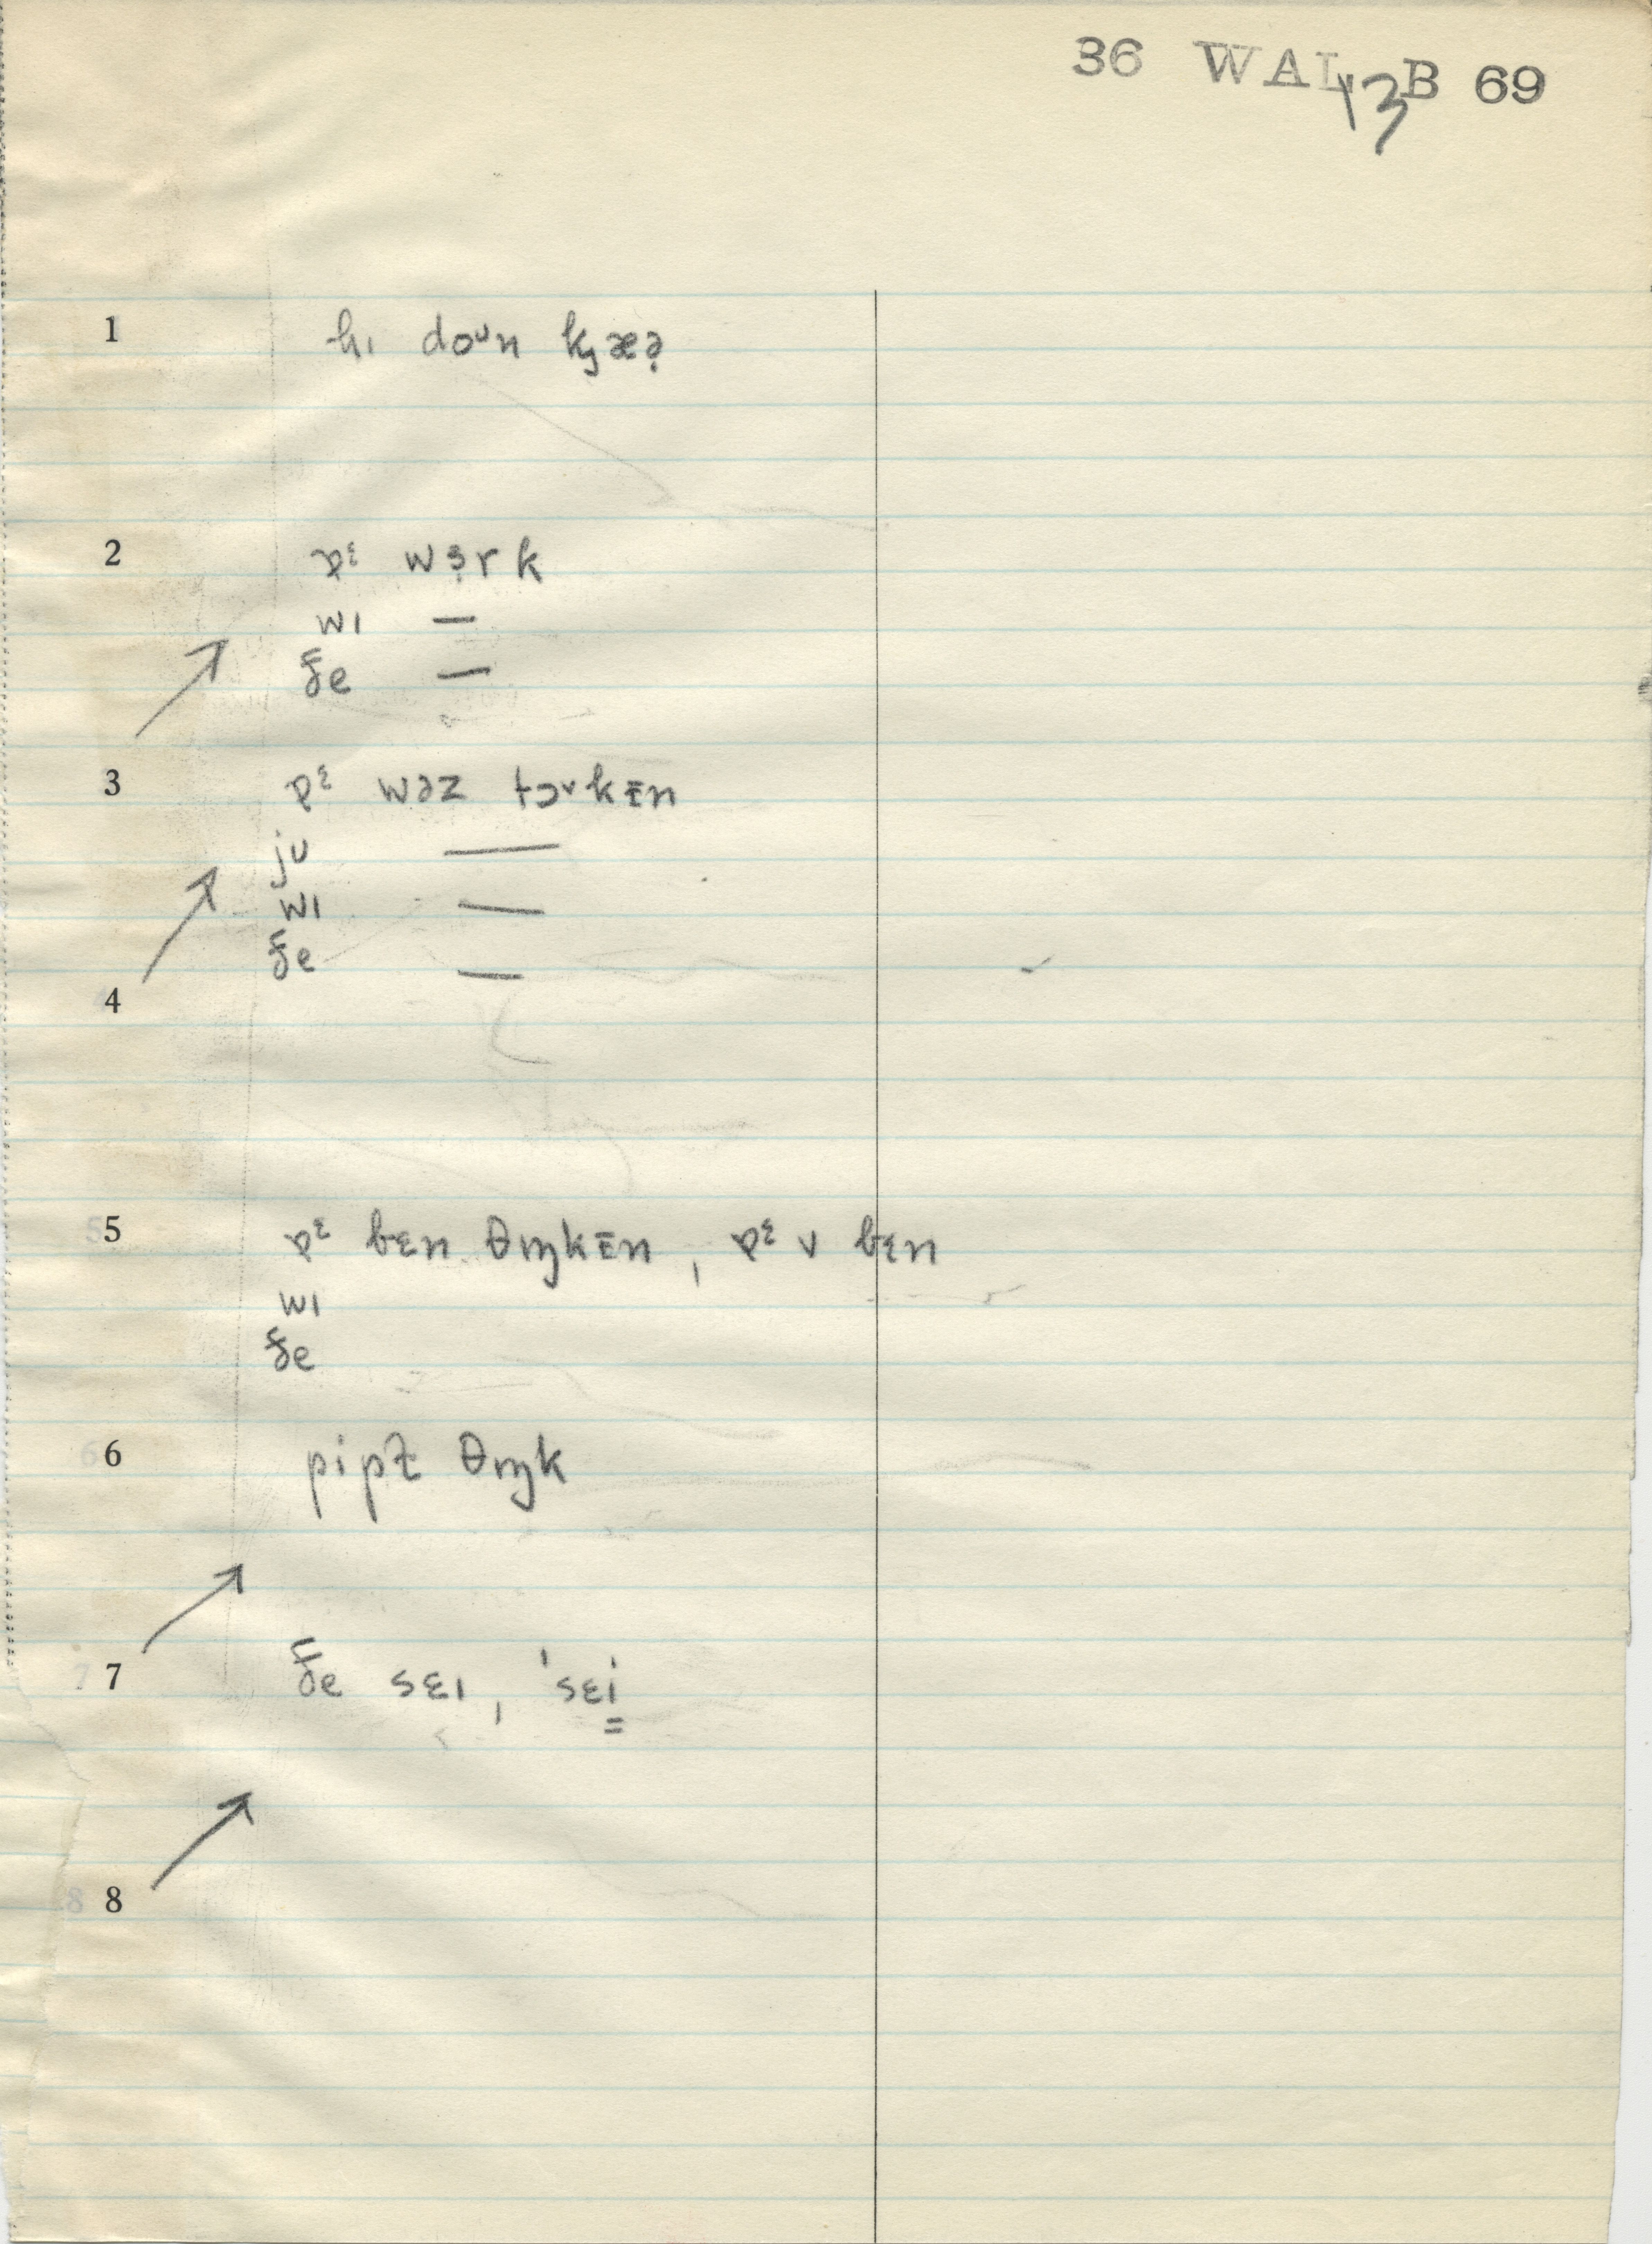 36 WAL B 69
13
1 hɪ doᶷn kȝæə̣
2 ɒᵋ wɜ̣rk
wɪ —
ðe —
3 ɒᵋ wəz tɔᵛkɪ̵n
ju —
wɪ —
ðe —
4
5 ɒᵋ bɛn θɪŋkɪ̵n, ɒᵋ v bɛn
wɪ
ðe
6 pipɫ̩ θɪŋk
7 ðe sɛɪ, 'sɛi
8